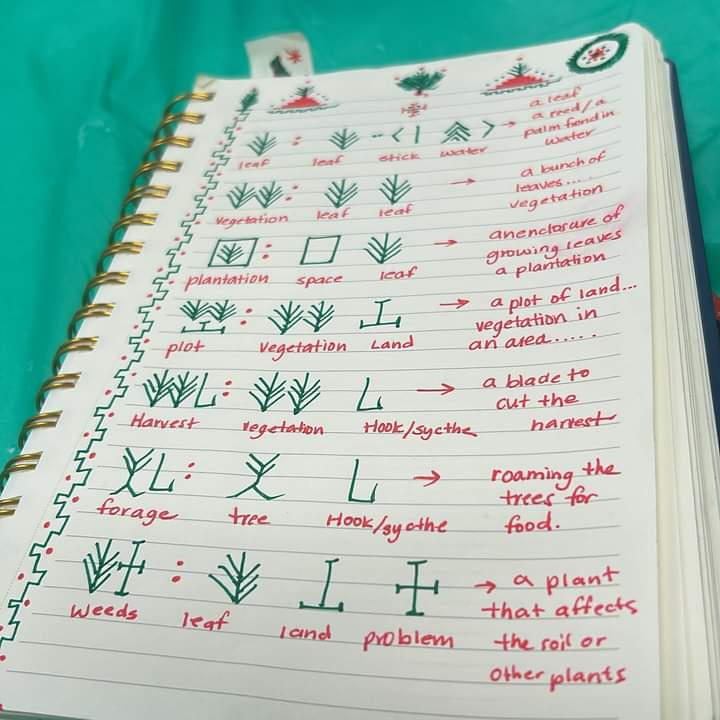 a leaf
leaf : leaf stick water → a reed/a
palm frond in
water
vegetation : leaf leaf → a bunch of
leaves....
vegetation
plantation : space leaf → an enclosure of
growing leaves
a plantation
plot : vegetation Land → a plot of land...
vegetation in
an area.....
Harvest : vegetation Hook/sycthe → a blade to
cut the
harvest
forage : tree Hook/sycthe → roaming the
trees for
food.
Weeds : leaf land problem → a plant
that affects
the soil or
other plants